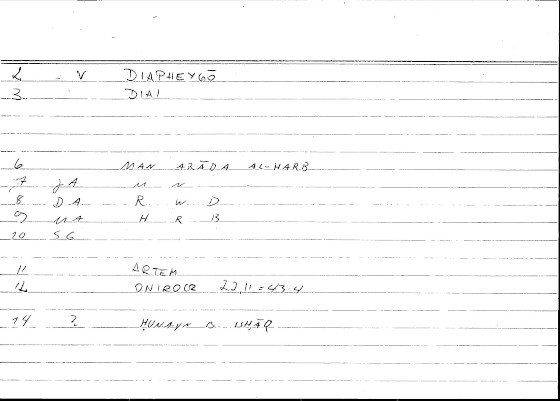 2 - V DIAPHEYGŌ
3 DIAI
6 MAN ARĀDA AL-HARB
7 JA M N
8 DA R W D
9 MA H R B
10 SG
11 ARTEM
12 ONIROCR 22,11 = 43.4
14 ? ḤUNAYN B ISḤĀQ